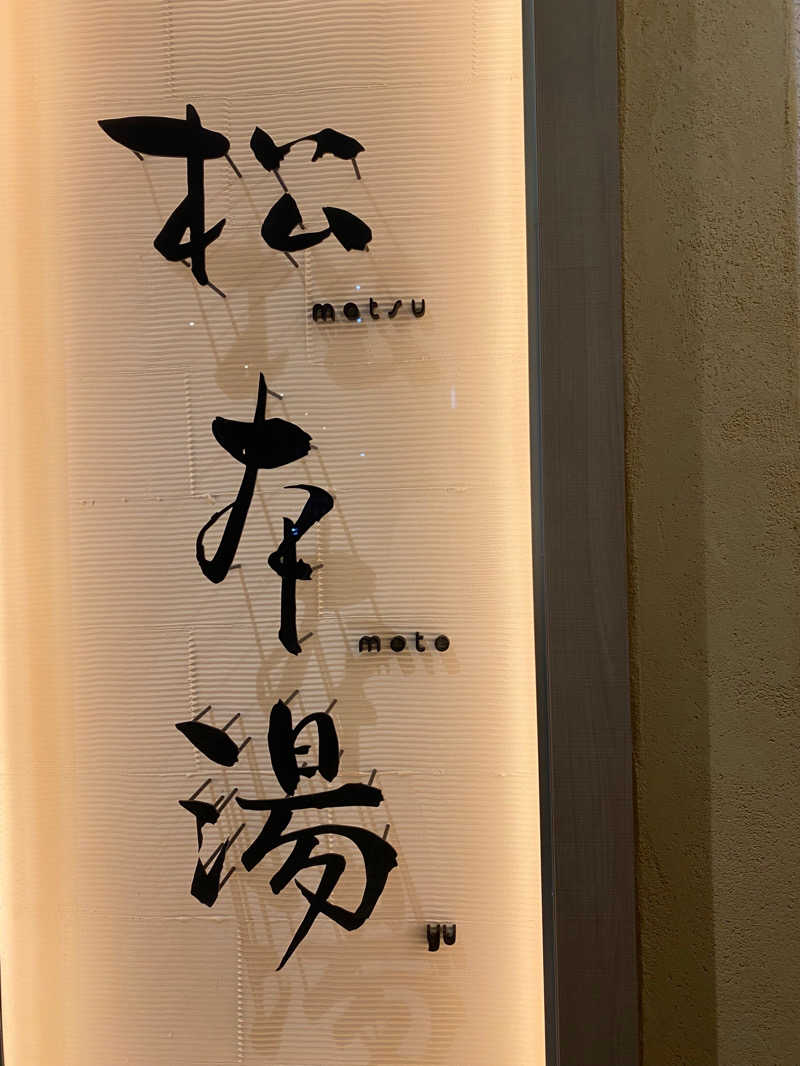 松
matsu
本
moto
湯
yu